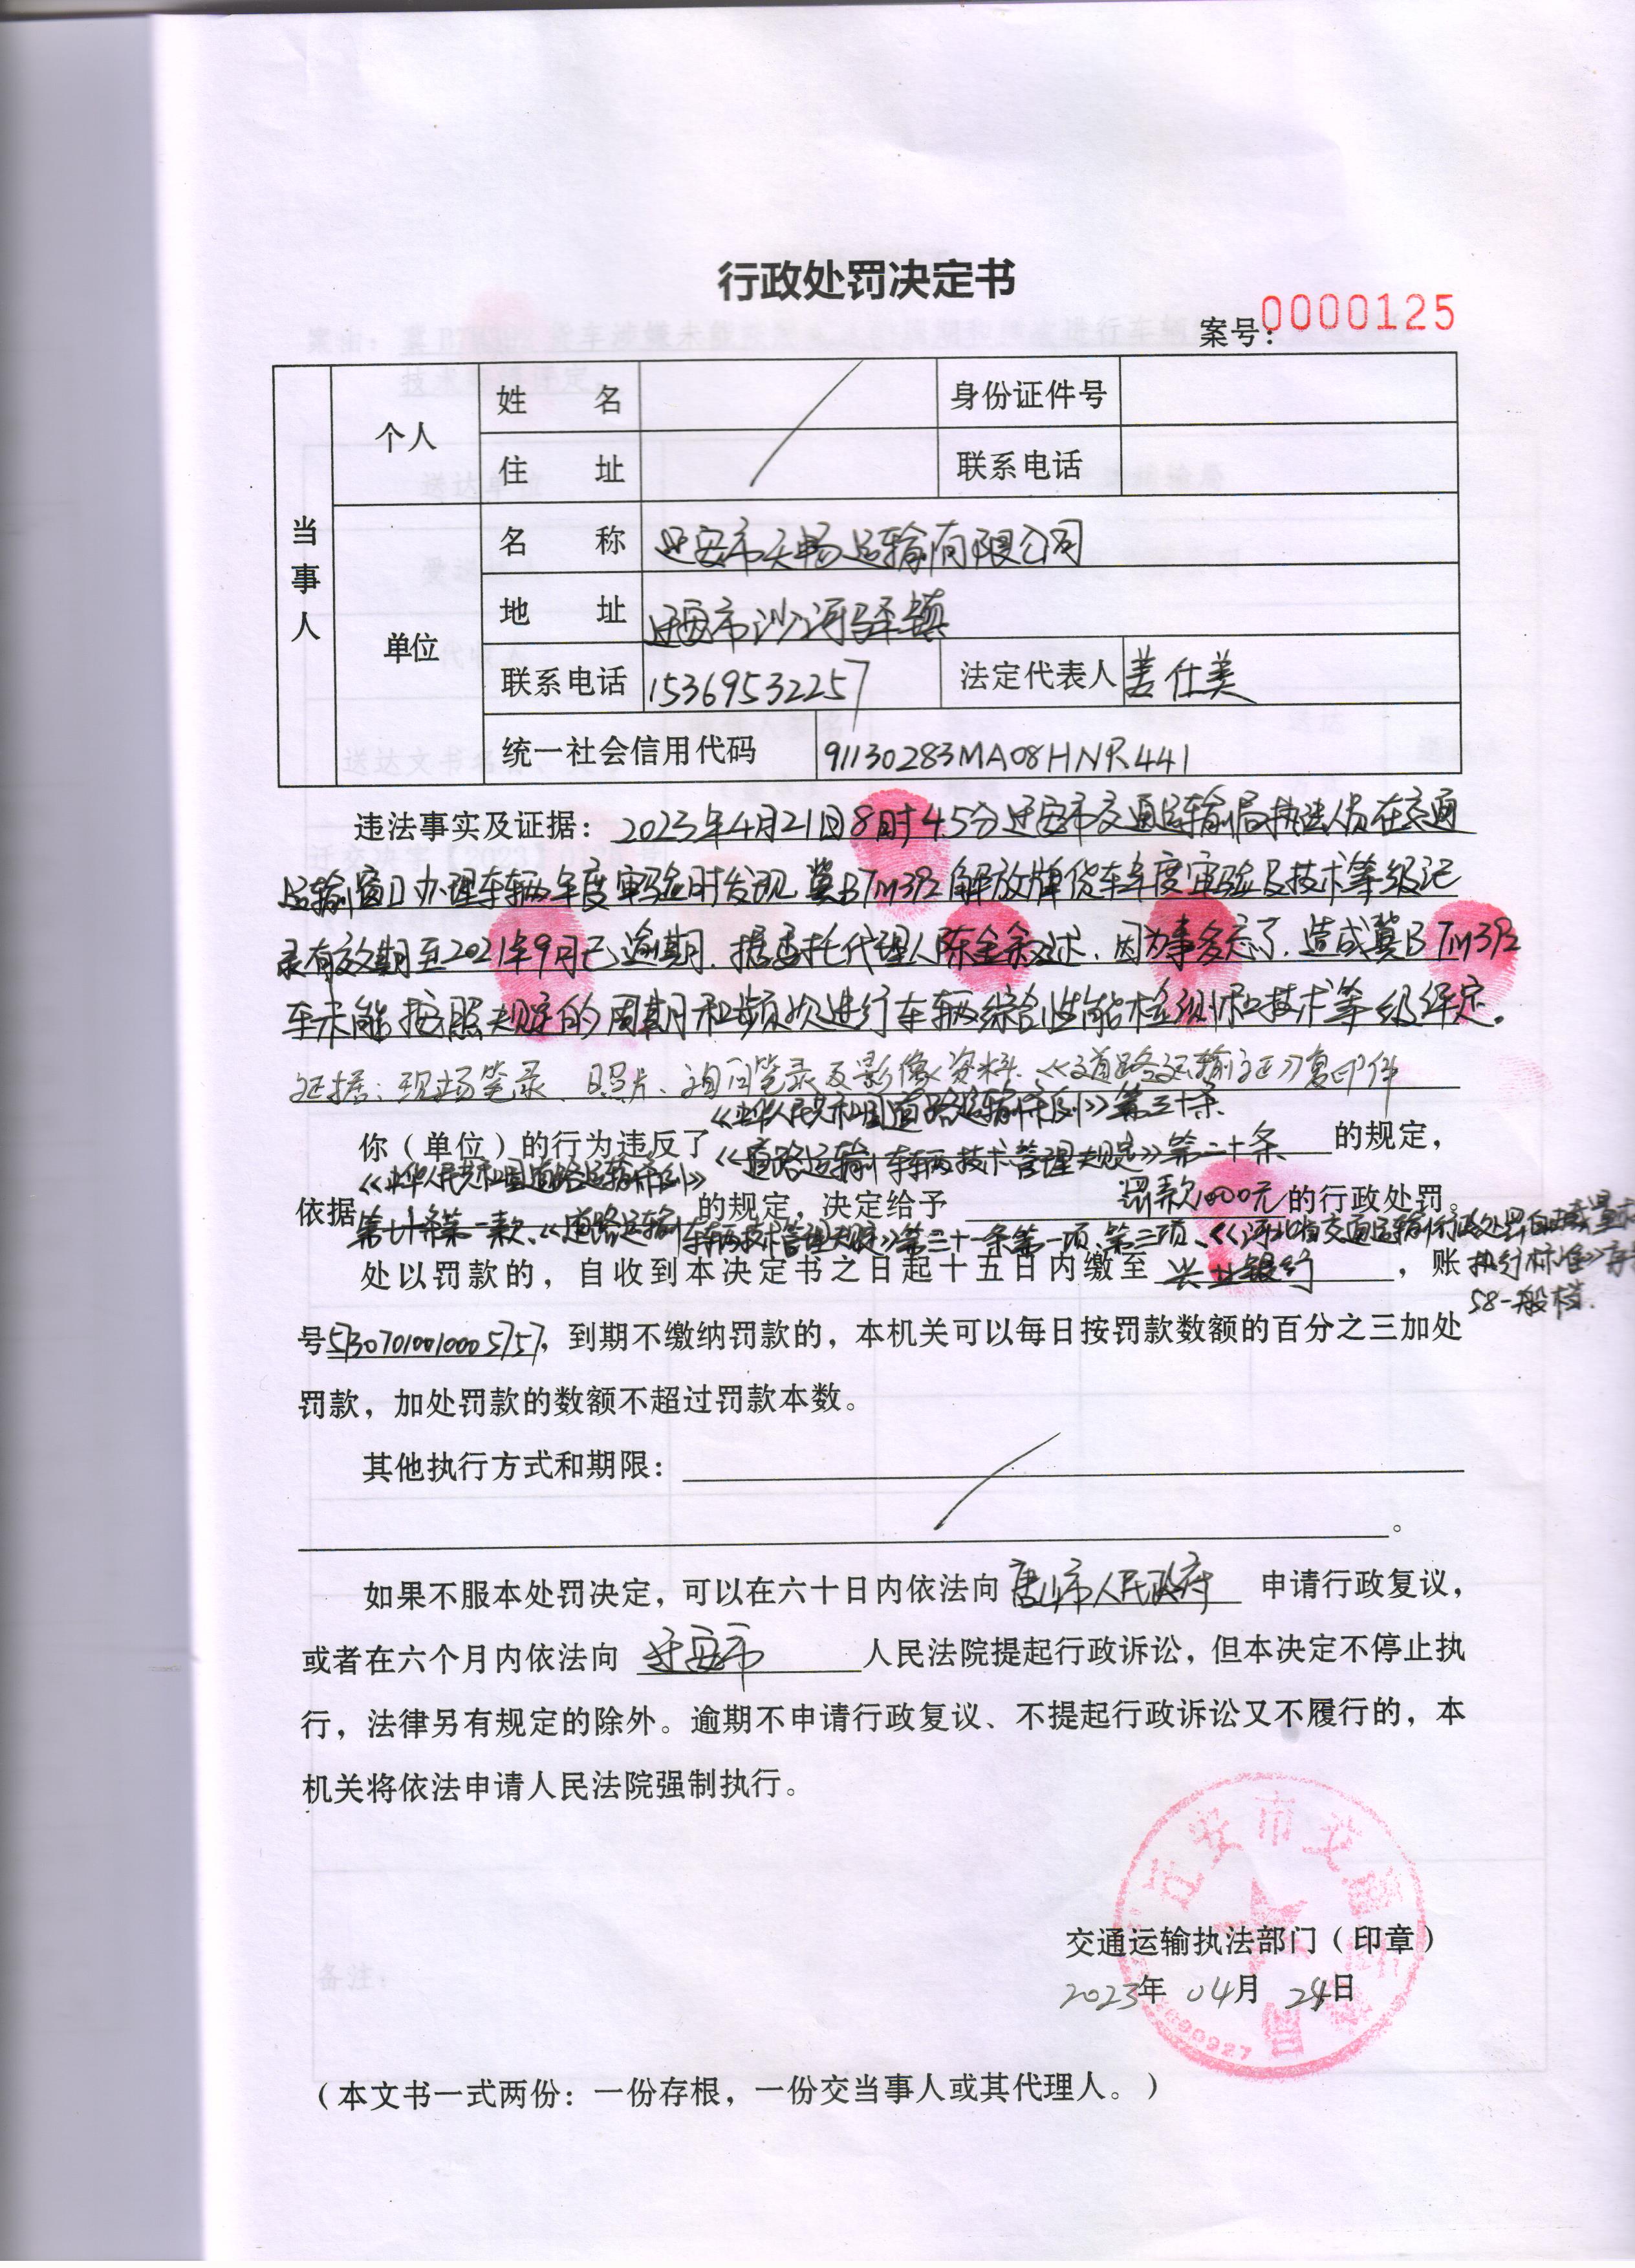 行政处罚决定书
案号:0000125
当事人
个人
姓名
身份证件号
住址
联系电话
单位
名称 迁安市天畅运输有限公司
地址 迁安市沙河驿镇
联系电话 15369532257 法定代表人 姜仕美
统一社会信用代码 91130283MA08HNR441
违法事实及证据：2023年4月21日8时45分迁安市交通运输局执法人员在交通
运输窗口办理车辆年度审验时发现冀BTM392解放牌货车年度审验及技术等级记
录有效期至2021年9月已逾期.据委托代理人陈金余叙述,因为事多忘了,造成冀BTM392
车未能按照规定的周期和频次进行车辆综合性能检测和技术等级评定。
证据：现场笔录、照片、询问笔录及影像资料、《道路运输证》复印件
《中华人民共和国道路运输条例》第三十条
你（单位）的行为违反了《道路运输车辆技术管理规定》第二十条的规定，
《中华人民共和国道路运输条例》
依据 的规定，决定给予 罚款1000元的行政处罚。
第七十条第一款、《道路运输车辆技术管理规定》第三十一条第一项、第三项、《河北省交通运输行政处罚自由裁量
执行标准》
58一般档.
处以罚款的，自收到本决定书之日起十五日内缴至兴业银行，账
号573070100100005757，到期不缴纳罚款的，本机关可以每日按罚款数额的百分之三加处
罚款，加处罚款的数额不超过罚款本数。
其他执行方式和期限：
。
如果不服本处罚决定，可以在六十日内依法向唐山市人民政府申请行政复议，
或者在六个月内依法向迁安市人民法院提起行政诉讼，但本决定不停止执
行，法律另有规定的除外。逾期不申请行政复议、不提起行政诉讼又不履行的，本
机关将依法申请人民法院强制执行。
迁安市交通运输局
交通运输执法部门（印章）
2023年04月24日
（本文书一式两份：一份存根，一份交当事人或其代理人。）